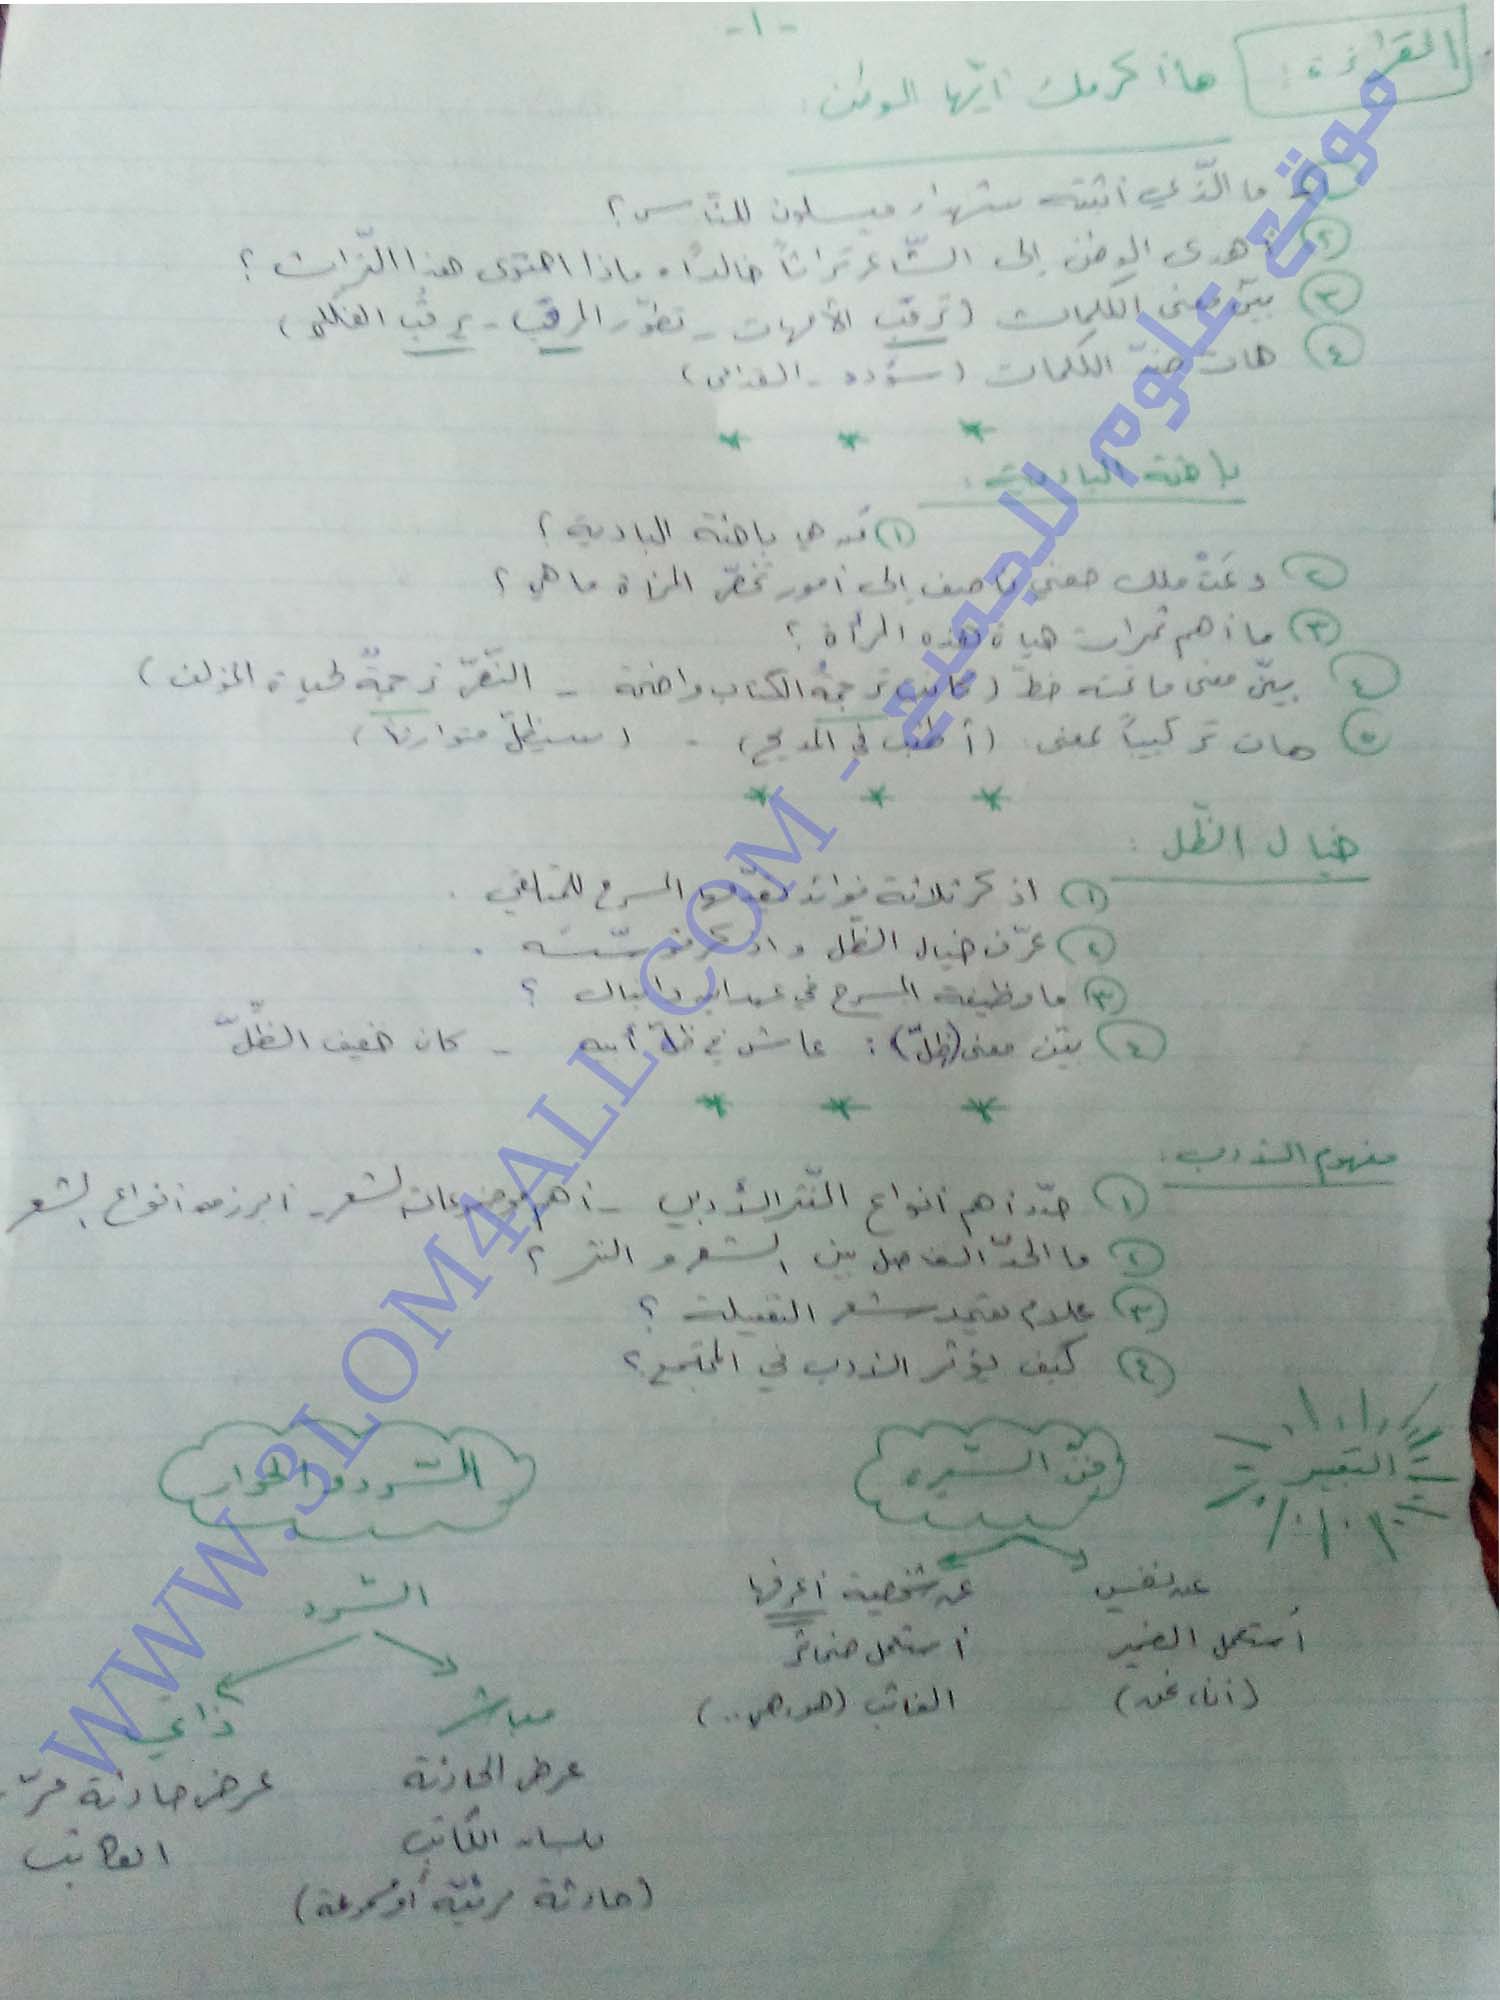 -١-
القراءة: ما أكرمك أيّها الوطن:
١ ما الّذي أثبته شهداء ميسلون للنّاس؟
٢ أهدى الوطن إلى الشّاعر تراثاً خالداً، ماذا احتوى هذا التّراث؟
٣ بيّن معنى الكلمات (ترقّب الأمهات - تطوّر المرقب - يرقب الفلكي)
٤ هات ضدّ الكلمات (سؤدد - القدامى)
* * *
باحثة البادية:
١ من هي باحثة البادية؟
٢ دعَتْ ملك حفني ناصف إلى أمور تخصّ المرأة ما هي؟
٣ ما أهم ثمرات حياة هذه المرأة؟
٤ بيّن معنى ما تحته خطّ (كانت ترجمةُ الكتاب واضحة - النّصّ ترجمةٌ لحياة المؤلف)
٥ هات تركيباً بمعنى: (أطنب في المديح) - (سيظلّ متوارثاً)
* * *
خيال الظّل:
١ اذكر ثلاثة فوائد يقدّمها المسرح للمتلقي.
٢ عرّف خيال الظّل واذكر مؤسّسه.
٣ ما وظيفة المسرح في عهد ابن دانيال؟
٤ بيّن معنى (ظلّ): عاش في ظلّ أبيه - كان خفيف الظّلّ
* * *
مفهوم الأدب:
١ حدّد أهم أنواع النّثر الأدبي - أهم موضوعات الشعر - أبرز أنواع الشعر
٢ ما الحدّ الفاصل بين الشعر و النثر؟
٣ علام يعتمد شعر التفعيلة؟
٤ كيف يؤثر الأدب في المجتمع؟
التعبير
فنّ السّيرة
السّرد والحوار
عن نفسي
أستعمل الضمير
(أنا، نحن)
عن شخصية أعرفها
أستعمل ضمائر
الغائب (هو، هي..)
السّرد
مباشر
عرض الحادثة
بلسان الكاتب
(حادثة مرئيّة أو مسموعة)
ذاتي
عرض حادثة مرّ
الكاتب
موقع علوم للجميع - WWW.3LOM4ALL.COM